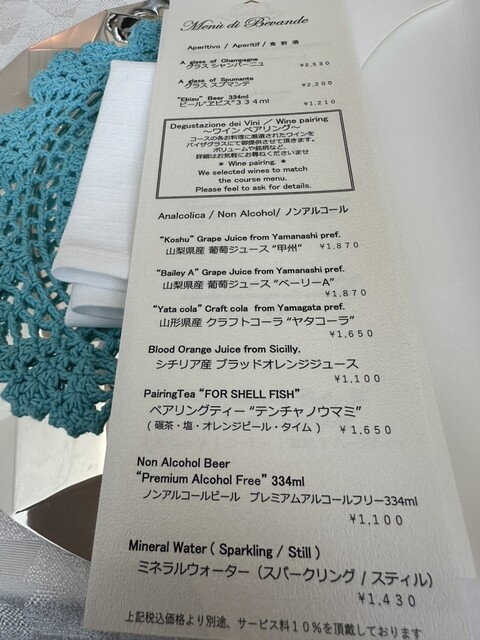 Menù di Bevande
Aperitivo / Aperitif / 食前酒
A glass of Champagne
グラス シャンパーニュ ¥2,530
A glass of Spumante
グラス スプマンテ ¥2,200
"Ebisu" Beer 334ml
ビール"ヱビス"334ml ¥1,210
Degustazione dei Vini / Wine pairing
～ワイン ペアリング～
コースの各お料理に厳選されたワインを
バイザグラスにて御提供させて頂きます。
ボリュームや銘柄など、
詳細はお気軽にお尋ねくださいませ
* Wine pairing. *
We selected wines to match
the course menu.
Please feel to ask for details.
Analcolica / Non Alcohol/ ノンアルコール
"Koshu" Grape Juice from Yamanashi pref.
山梨県産 葡萄ジュース "甲州" ¥1,870
"Bailey A" Grape Juice from Yamanashi pref.
山梨県産 葡萄ジュース "ベーリーA"
¥1,870
"Yata cola" Craft cola from Yamagata pref.
山形県産 クラフトコーラ "ヤタコーラ"
¥1,650
Blood Orange Juice from Sicilly.
シチリア産 ブラッドオレンジジュース
¥1,100
PairingTea "FOR SHELL FISH"
ペアリングティー "テンチャノウマミ"
(碾茶・塩・オレンジピール・タイム) ¥1,650
Non Alcohol Beer
"Premium Alcohol Free" 334ml
ノンアルコールビール プレミアムアルコールフリー334ml
¥1,100
Mineral Water ( Sparkling / Still )
ミネラルウォーター (スパークリング / スティル)
¥1,430
上記税込価格より別途、サービス料10%を頂戴しております